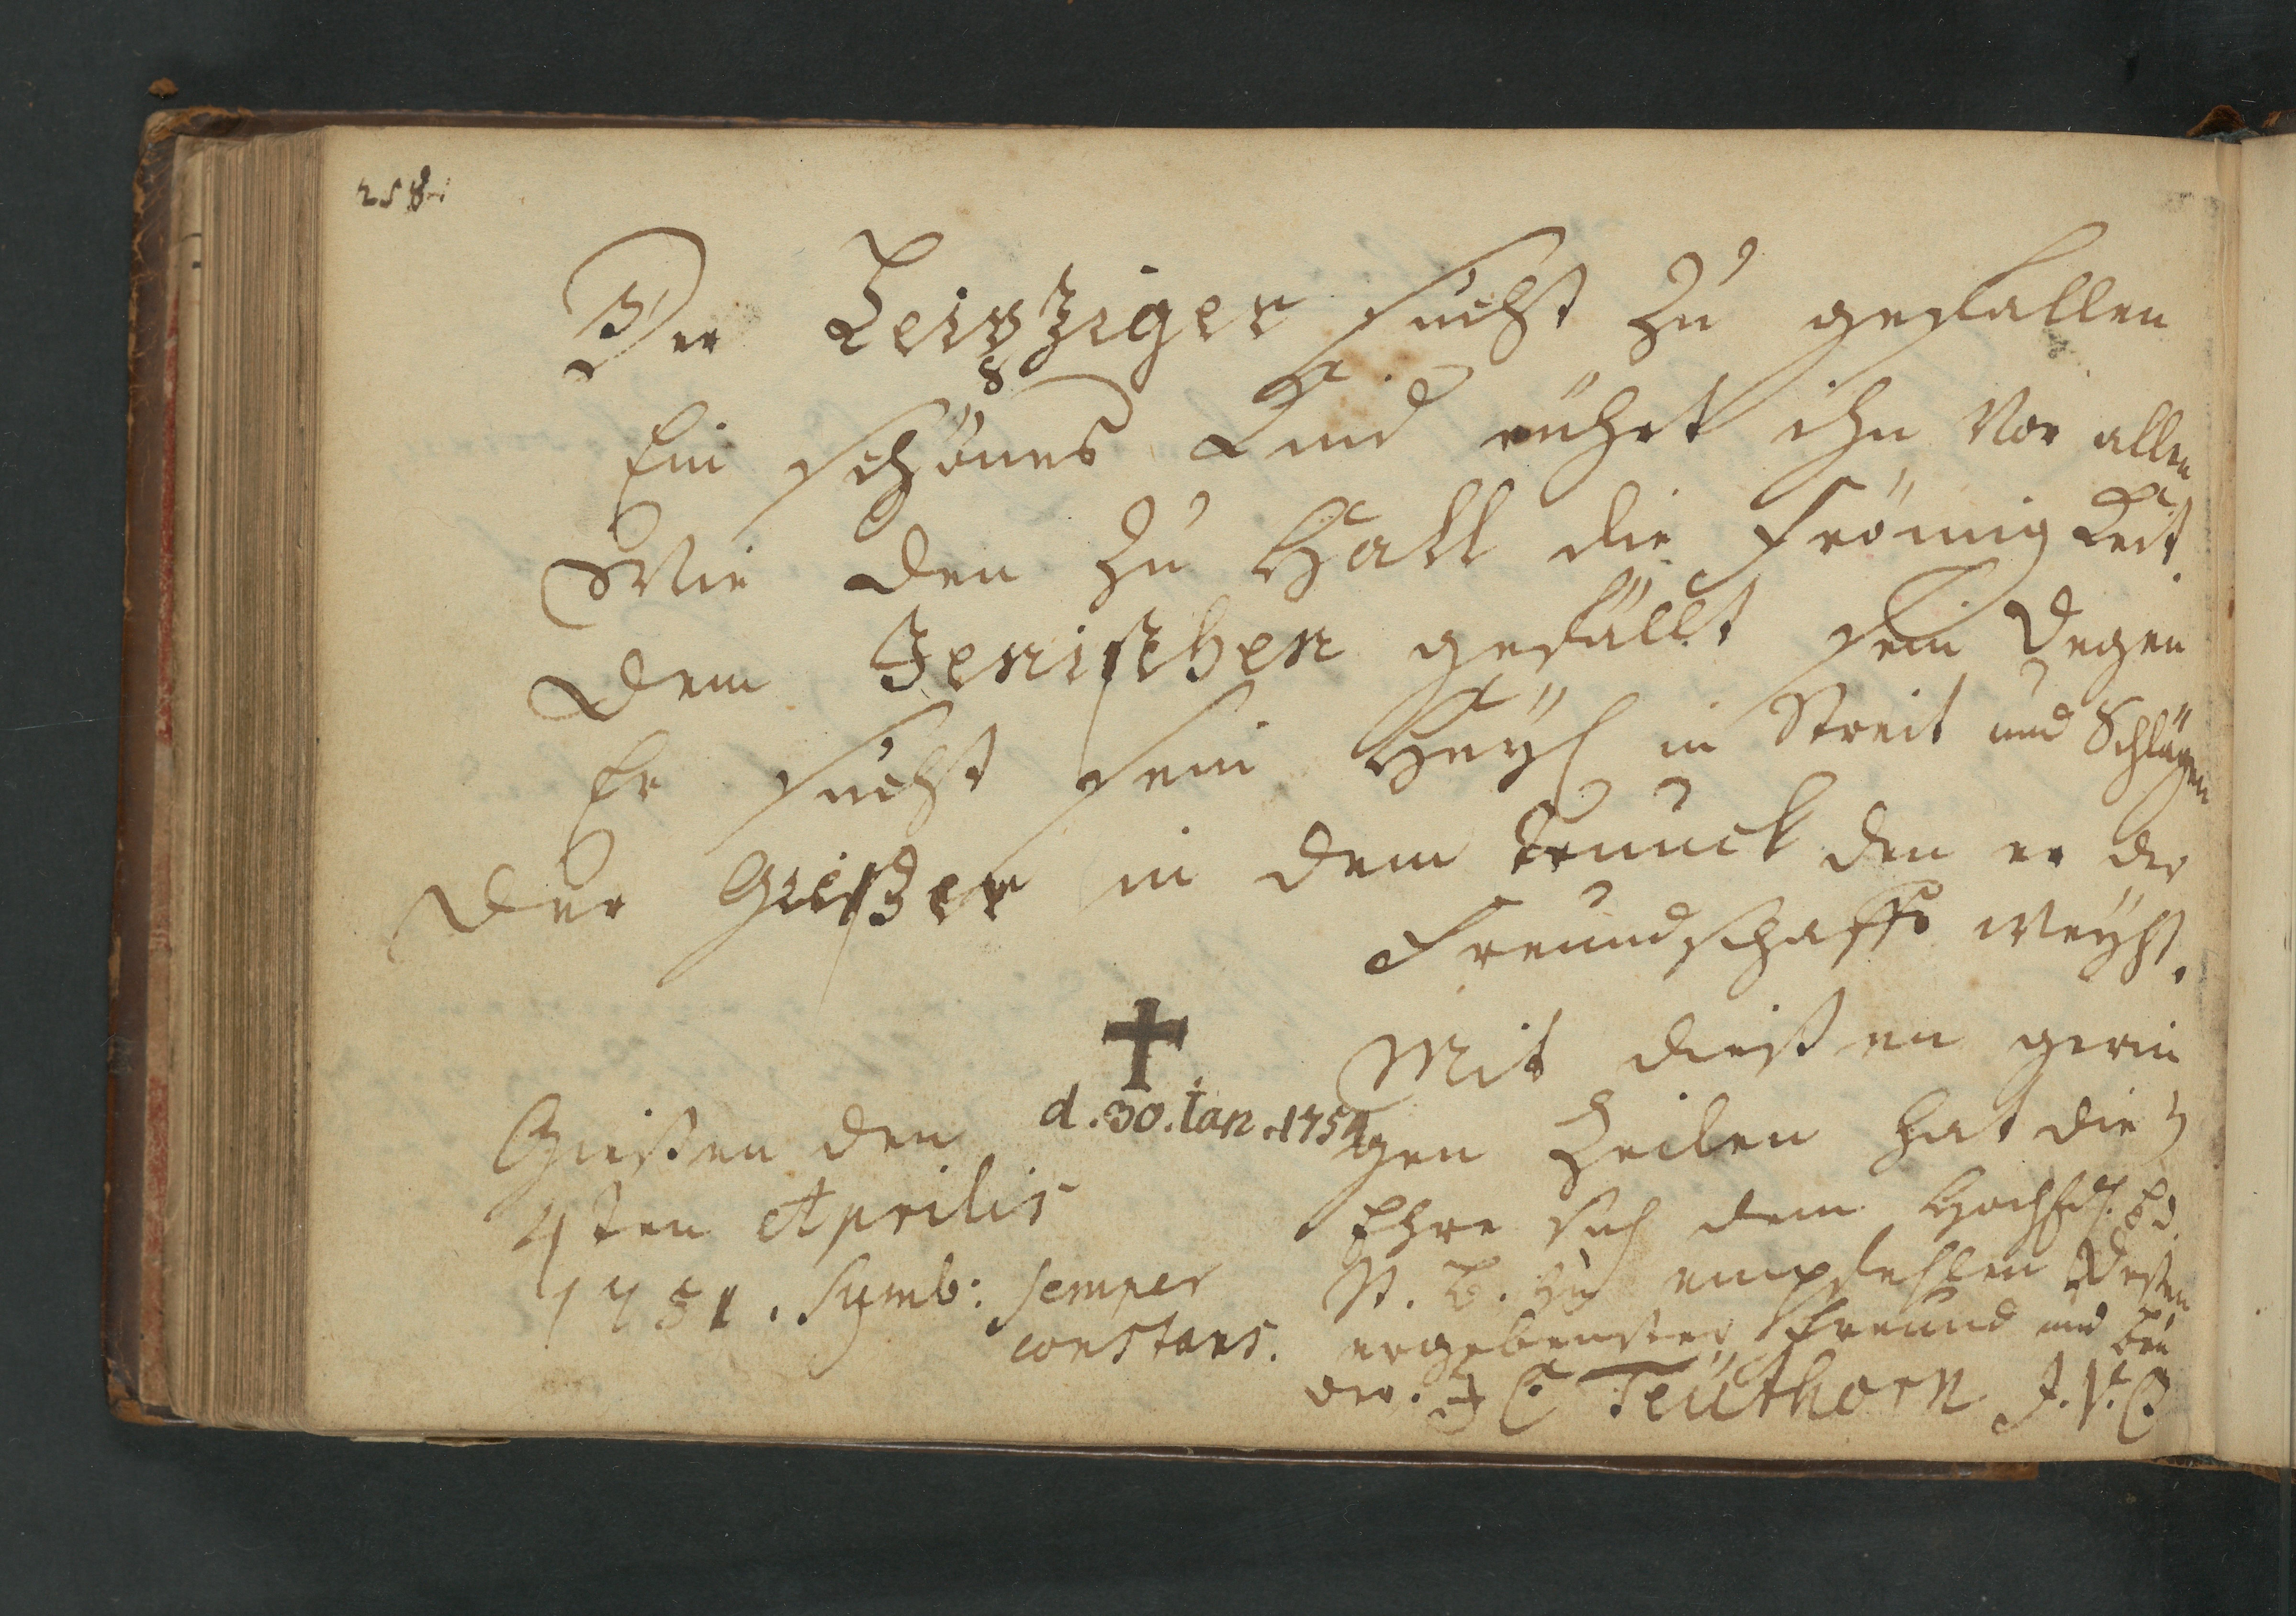 258.
Der Leipziger sucht zu gefallen
Ein schönes Kind rührt ihn vor allen
Wie den zu Hall die Frömigkeit.
Dem Jenischen gefällt sein Degen
Er sucht sein Heyl in Streit und Schlägen
Der Gießer in dem trunck den er der
Freundschafft weyht.
d. 30. Jan. 1754
Gießen den
4ten Aprilis
1751. Symb: semper
constans.
Mit dießen gerin
gen Zeilen hat die
Ehre sich dem
St. B. zu empfehlen Deßen
ergebenster Freund und Bru
der. J C Teuthorn J. V. C